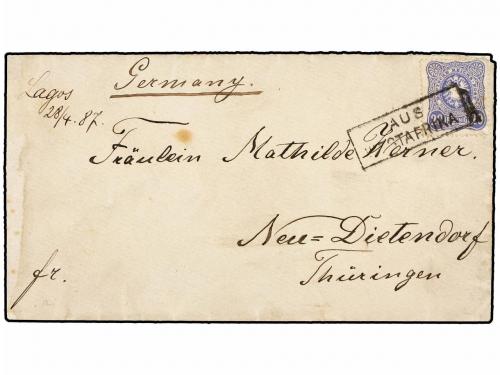 Germany.
Lagos
28/4. 87.
AUS
WESTAFRIKA
Fräulein Mathilde Werner.
Neu=Dietendorf
Thüringen
fr.